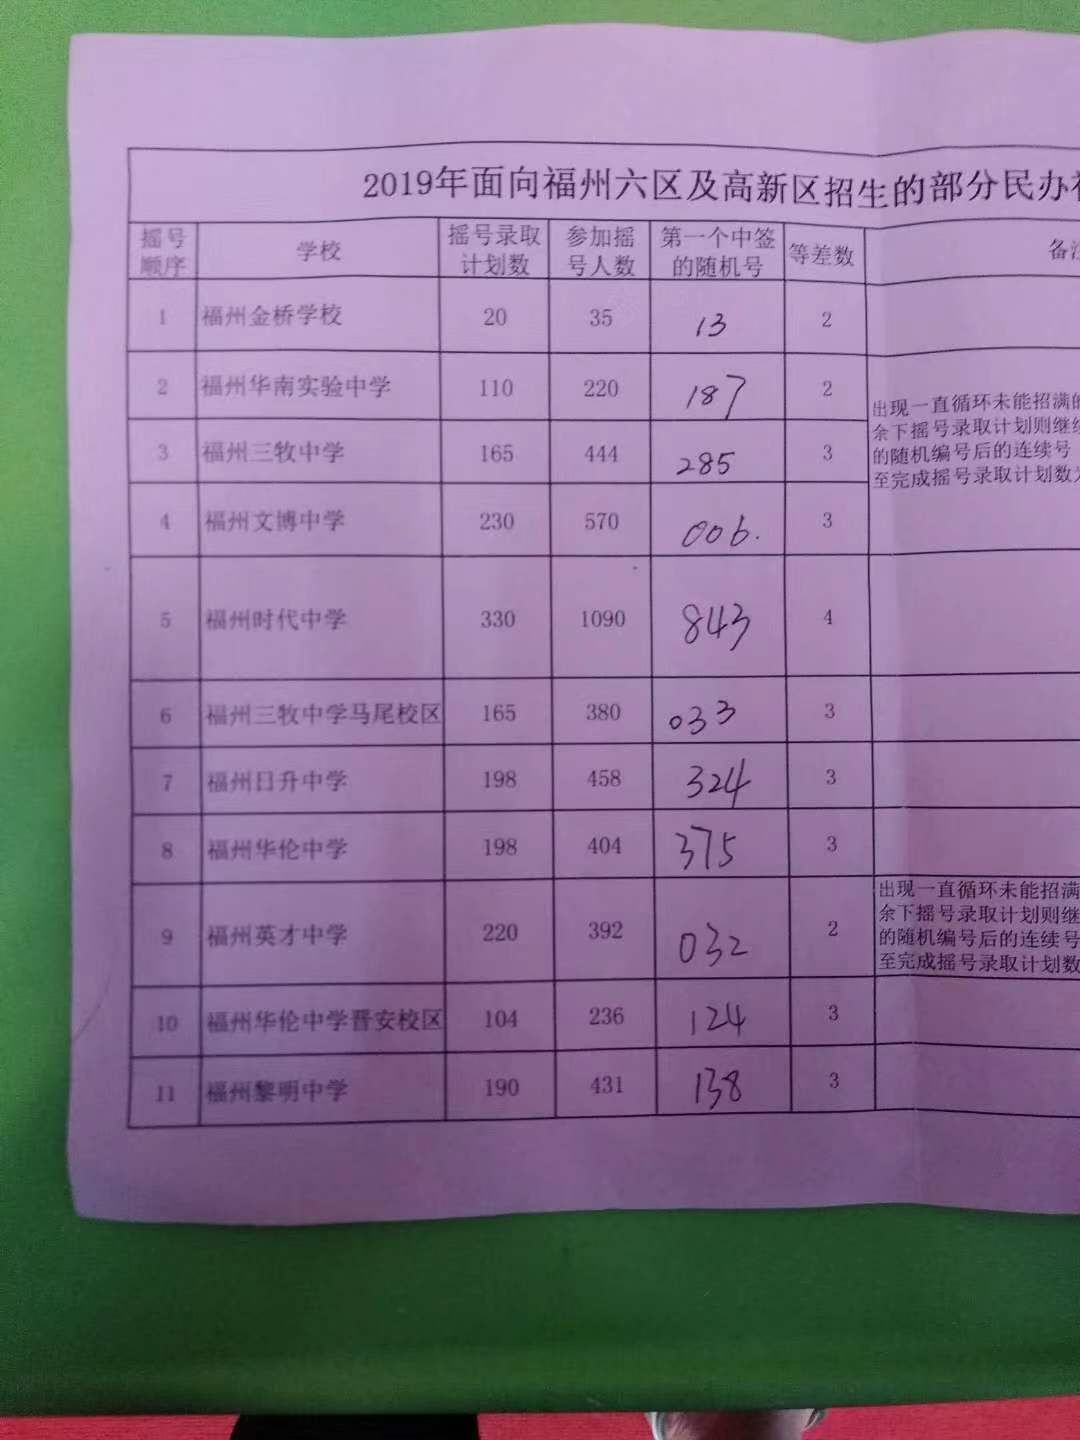 2019年面向福州六区及高新区招生的部分民办
摇号顺序 学校 摇号录取计划数 参加摇号人数 第一个中签的随机号 等差数 备注
1 福州金桥学校 20 35 13 2
2 福州华南实验中学 110 220 187 2
3 福州三牧中学 165 444 285 3
4 福州文博中学 230 570 006. 3
出现一直循环未能招满的
余下摇号录取计划则继续
的随机编号后的连续号
至完成摇号录取计划数为
5 福州时代中学 330 1090 843 4
6 福州三牧中学马尾校区 165 380 033 3
7 福州日升中学 198 458 324 3
8 福州华伦中学 198 404 375 3
9 福州英才中学 220 392 032 2
出现一直循环未能招满
余下摇号录取计划则继
的随机编号后的连续号
至完成摇号录取计划数
10 福州华伦中学晋安校区 104 236 124 3
11 福州黎明中学 190 431 138 3